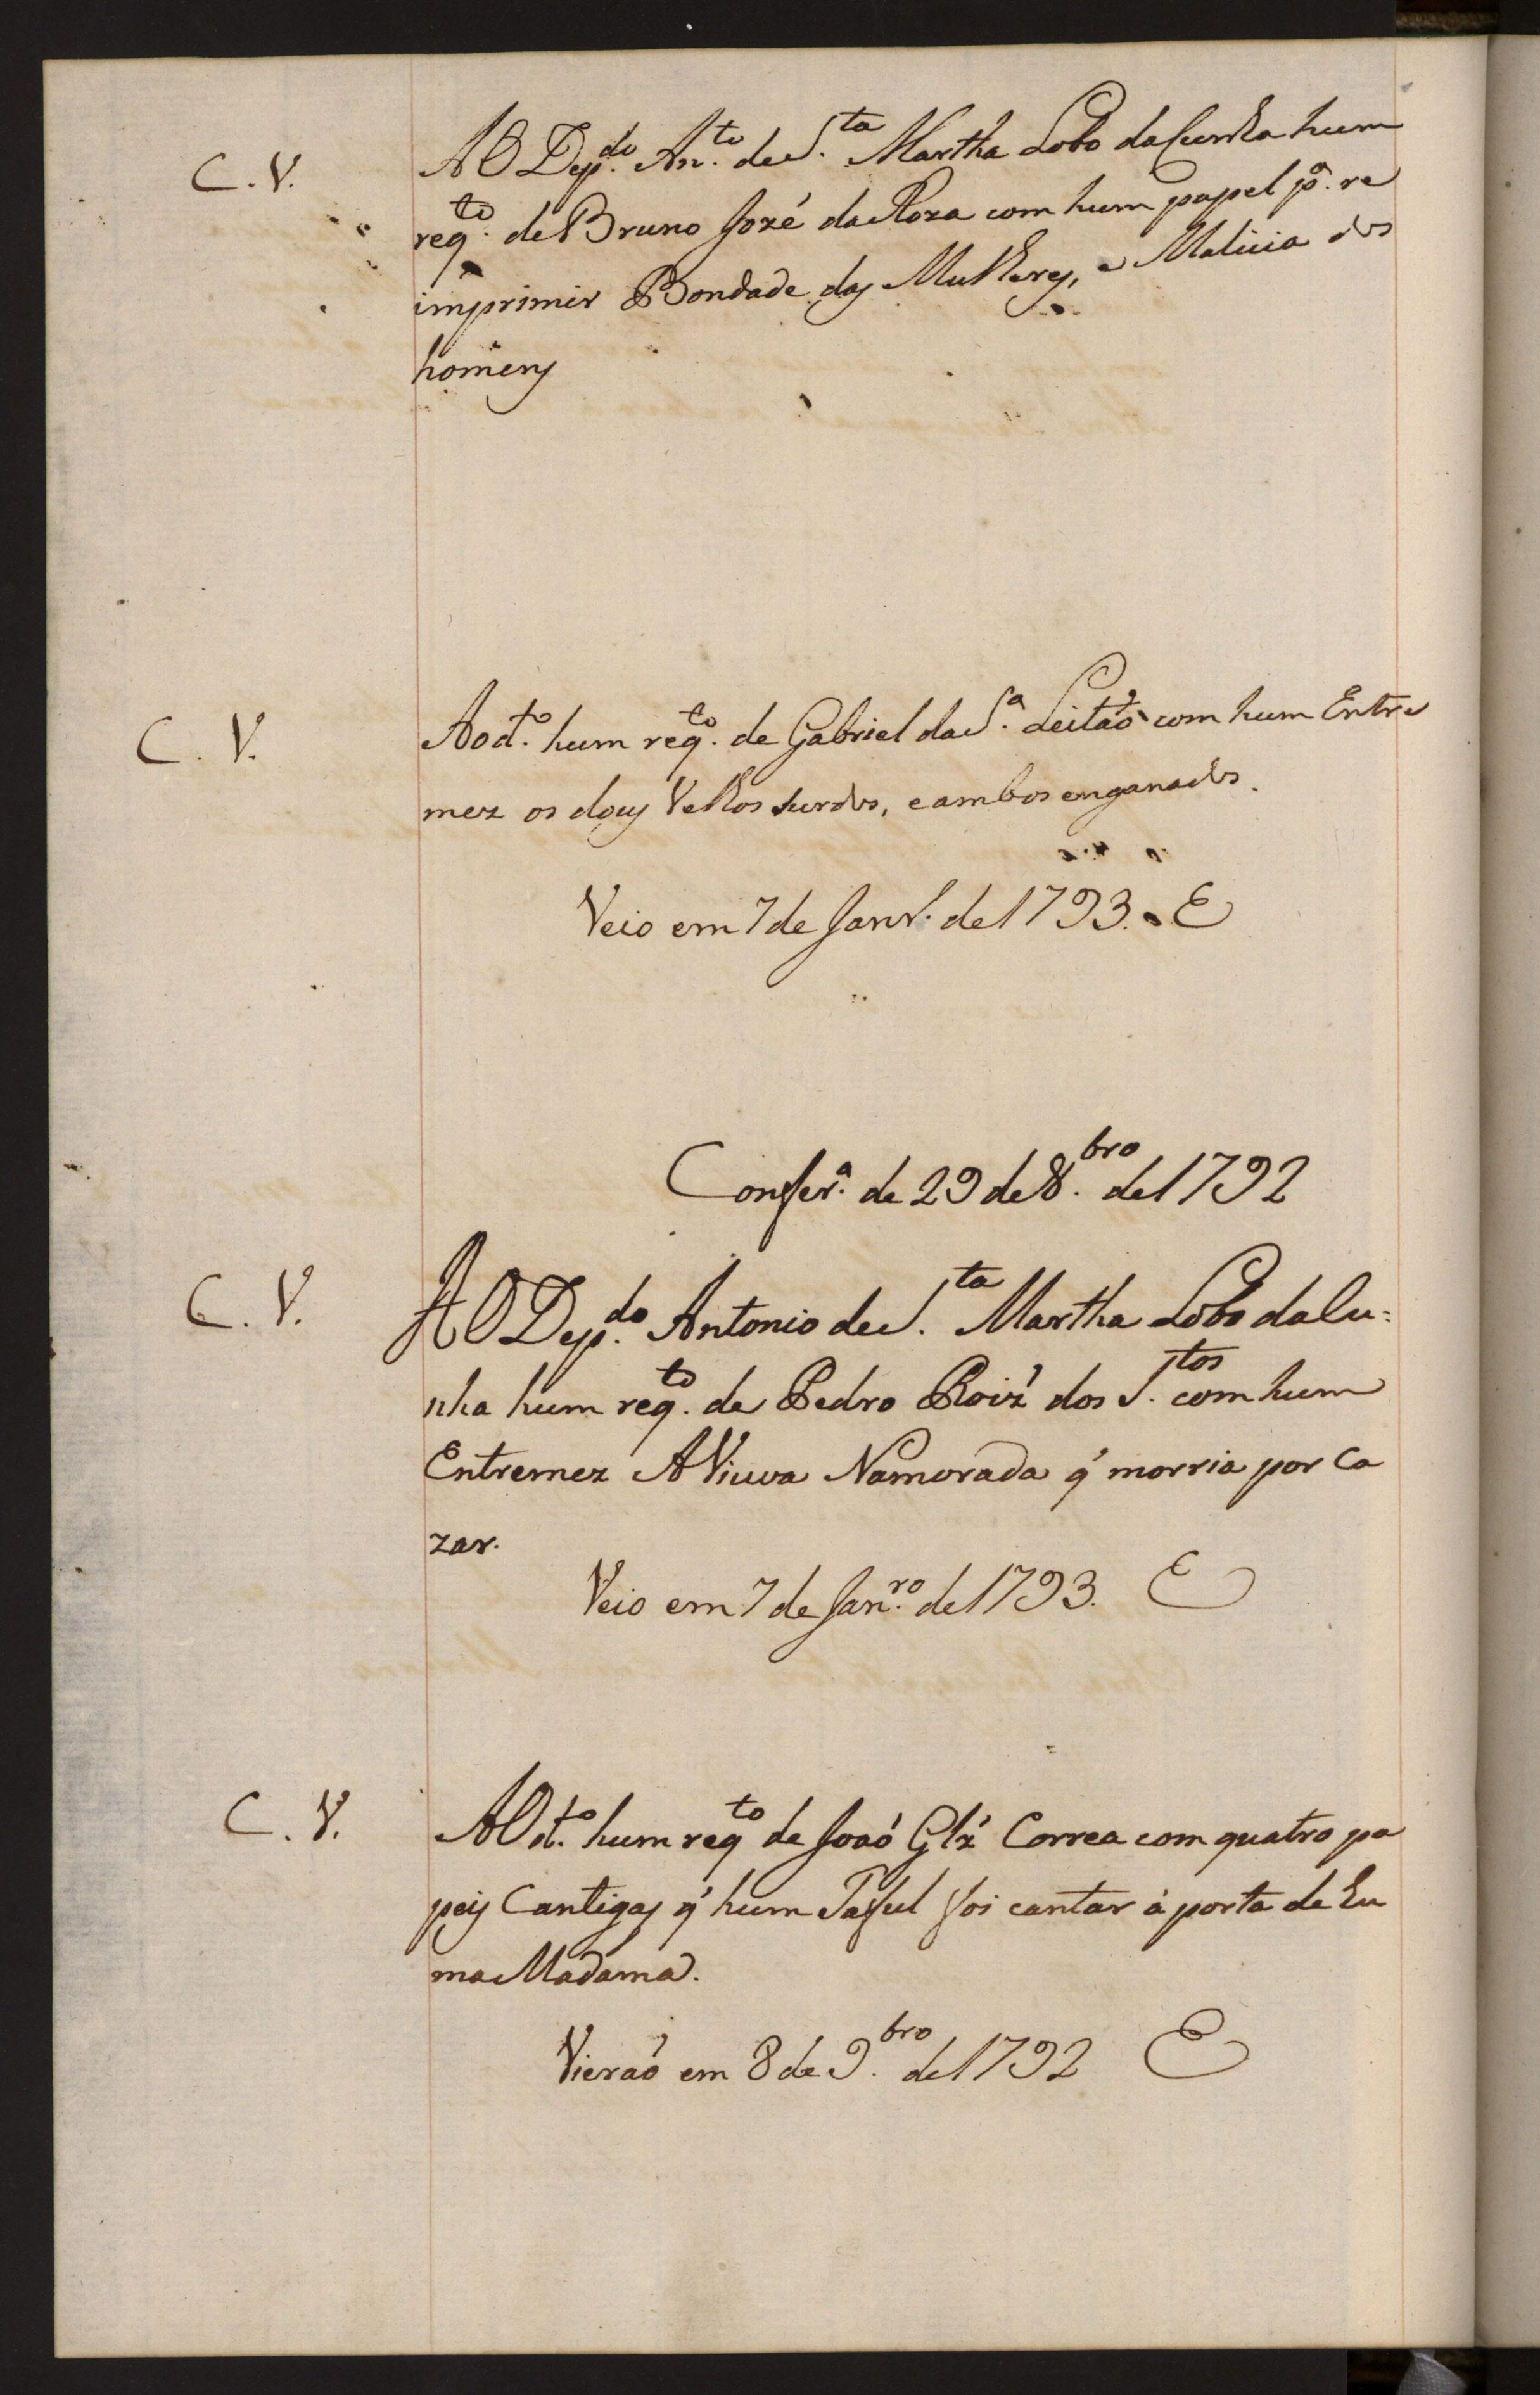 C. V.
AO Dep.do An.to de S.ta Martha Lobo da Cunha hum
req.to de Bruno José da Roza com hum papel p.a re
imprimir Bondade das Mulheres, e Malicia dos
homens
C. V.
Ao d.o hum req.to de Gabriel da S.a Leitaõ com hum Entre
mez os dous Velhos surdos, e ambos enganados.
Veio em 7 de Janr.o de 1793. E
Confer.a de 29 de 8.bro de 1792
C. V.
AO Dep.do Antonio de S.ta Martha Lobo da Cu-
nha hum req.to de Pedro Roiz' dos S.tos com hum
Entremez A Viuva Namorada q' morria por Ca
zar.
Veio em 7 de Jan.ro de 1793. E
C. V.
AO d.o hum req.to de Joaõ Glz' Correa com quatro pa
peis Cantigas q' hum Taful foi cantar á porta de hu
ma Madama.
Vieraõ em 8 de 9.bro de 1792 E